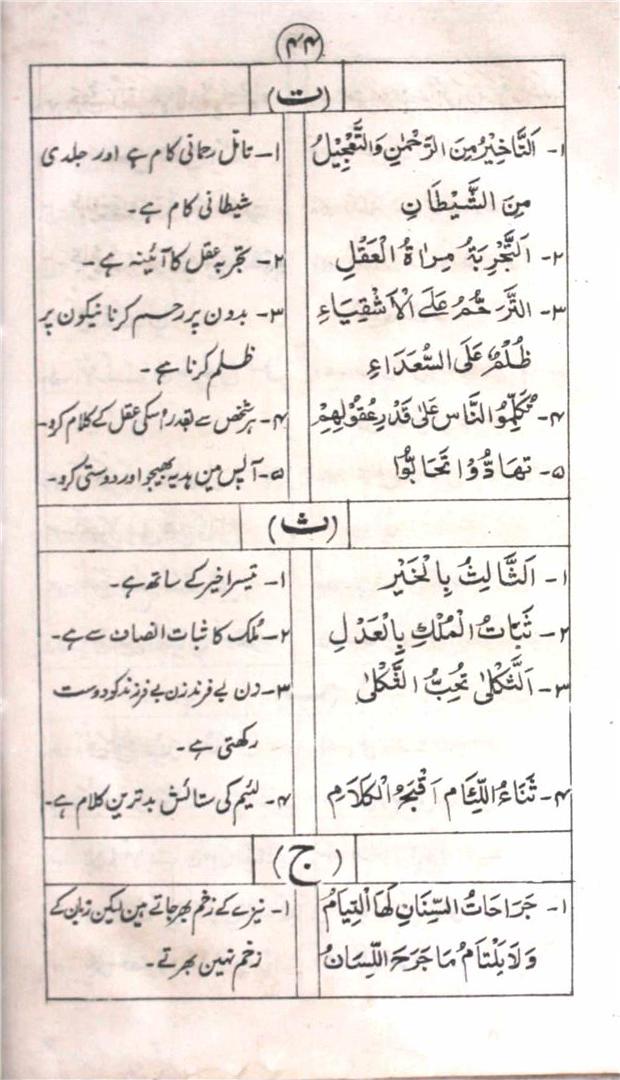 ۴۴
(ت)
۱- اَلتَّاخِيْرُ مِنَ الرَّحْمٰنِ وَالتَّعْجِيْلُ
مِنَ الشَّيْطَانِ
۲- اَلتَّجْرِبَةُ مِرْاٰةُ الْعَقْلِ
۳- اَلتَّرَحُّمُ عَلَے الْاَشْقِيَاءِ
ظُلْمٌ عَلَى السُّعَدَاءِ
۴- تُكَلِّمُو النَّاسَ عَلٰى قَدْرِ عُقُوْلِهِمْ
۵- تَهَادُّوْا تَحَابُّوْا
۱- تامل رحمانی کام ہے اور جلدی
شیطانی کام ہے۔
۲- تجربہ عقل کا آئینہ ہے۔
۳- بدون پر رحم کرنا نیکون پر
ظلم کرنا ہے۔
۴- ہر شخص سے بقدر اُسکی عقل کے کلام کرو۔
۵- آپس مین ہدیہ بھیجو اور دوستی کرو۔
(ث)
۱- اَلثَّالِثُ بِالْخَيْرِ
۲- ثَبَّاتُ الْمُلْكِ بِالْعَدْلِ
۳- اَلثَّكْلٰى تُحِبُّ الثَّكْلٰى
۴- ثَنَاءُ اللِّئَامِ اَقْبَحُ الْكَلَامِ
۱- تیسرا خیر کے ساتھ ہے۔
۲- مُلک کا ثبات انصاف سے ہے۔
۳- زن بے فرزند زن بے فرزند کو دوست
رکھتی ہے۔
۴- لئیم کی ستائش بدترین کلام ہے۔
(ج)
۱- جَرَاحَاتُ السِّنَانِ لَهَا الْتِيَامُ
وَلَا يَلْتَامُ مَا جَرَحَ اللِّسَانُ
۱- نیزے کے زخم بھر جاتے ہین لیکن زبان کے
زخم نہین بھرتے۔